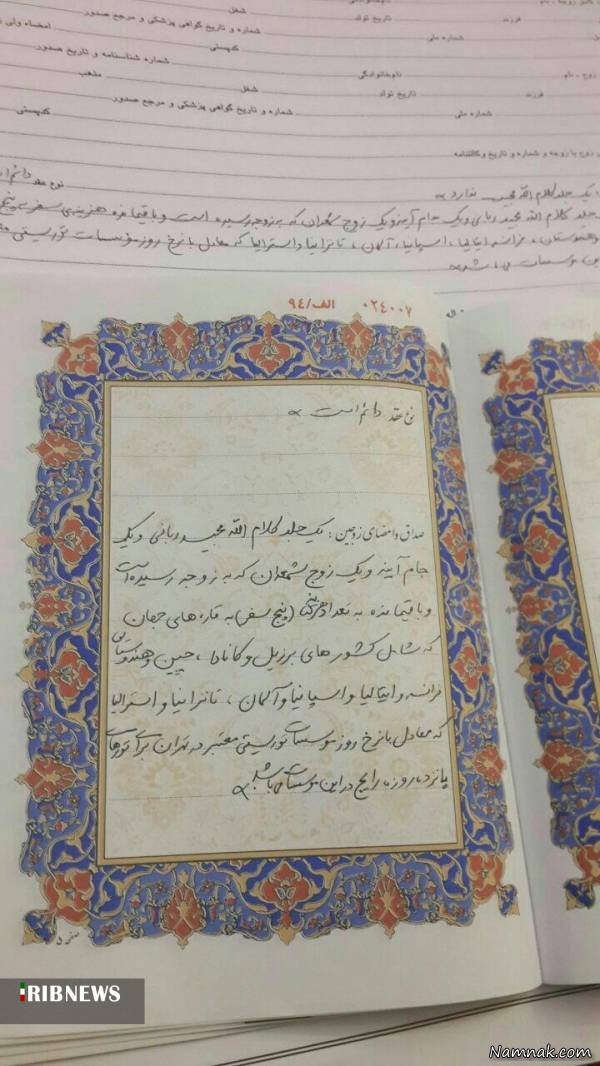 شغل
فرزند
تاریخ تولد
شماره و تاریخ گواهی پزشکی و مرجع صدور
امضاء ولی
شماره ملی
کدپستی
شماره شناسنامه و تاریخ صدور
نام‌خانوادگی
مذهب
فرزند
تاریخ تولد
شغل
شماره ملی
شماره و تاریخ گواهی پزشکی و مرجع صدور
کدپستی
زوج با زوجه و شماره و تاریخ وکالتنامه
نوع عقد دائم
یک جلد کلام الله مجید ندارد
جلد کلام الله مجید ربانی و یک جام آینه و یک زوج شمعدان که به زوجه رسیده است و باقیمانده هزینه‌ی سفر به پنج
وهندوستان، فرانسه ایتالیا، اسپانیا، آلمان، تانزانیا و استرالیا که معادل با نرخ روز مؤسسات توریستی
این موسسات می باشد
الف/۹۴ ۰۲۴۰۰۷
نوع عقد دائم است
صداق و امضای زوجین: یک جلد کلام الله مجید ربانی و یک
جام آینه و یک زوج شمعدان که به زوجه رسیده است
و باقیمانده به تعداد (پنج سفر) به قاره های جهان
که شامل کشور های برزیل و کانادا، چین و هندوستان
فرانسه و ایتالیا و اسپانیا و آلمان، تانزانیا و استرالیا
که معادل با نرخ روز موسسات توریستی معتبر در تهران برای تورهای
پانزده روزه رایج در این موسسات می باشد
صفحه ۵
IRIBNEWS
Namnak.com